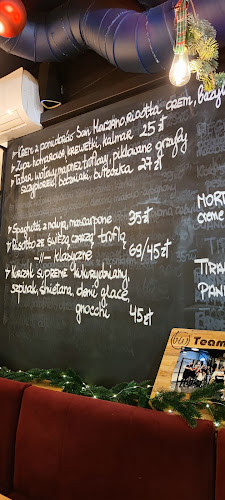 Krem z pomidorów San Marzano, ricotta cream, bazyl
Zupa homarowa, krewetki, kalmar 25 zł
Tatar wołowy, majonez truflowy, piklowane grzyby
szczypiorek, boczniaki, bułeczka 27 zł
Spaghetti z nduja, mascarpone 35 zł
Risotto ze świeżą czarną truflą
-//- klasyczne 69/45 zł
Kurczak supreme kukurydziany,
szpinak, śmietana, demi glace,
gnocchi 45 zł
MOR
creme
TIRA
PAN
Team